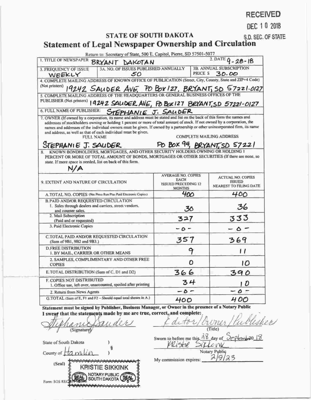 RECEIVED
DEC 10 2018
S.D. SEC. OF STATE
STATE OF SOUTH DAKOTA
Statement of Legal Newspaper Ownership and Circulation
Return to: Secretary of State, 500 E. Capitol, Pierre, SD 57501-5077
1. TITLE OF NEWSPAPER BRYANT DAKOTAN
2. DATE 9-28-18
3. FREQUENCY OF ISSUE WEEKLY
3A. NO. OF ISSUES PUBLISHED ANNUALLY 50
3B. ANNUAL SUBSCRIPTION PRICE $ 30.00
4. COMPLETE MAILING ADDRESS OF KNOWN OFFICE OF PUBLICATION (Street, City, County, State and ZIP+4 Code)
(Not printers) 19242 SAUDER AVE PO BOX 127, BRYANT, SD 57221-0127
5. COMPLETE MAILING ADDRESS OF THE HEADQUARTERS OR GENERAL BUSINESS OFFICES OF THE
PUBLISHER (Not printers) 19242 SAUDER AVE, PO BOX 127 BRYANT, SD 57221-0127
6. FULL NAME OF PUBLISHER: STEPHANIE J. SAUDER
7. OWNER (If owned by a corporation, its name and address must be stated and
FULL NAME
COMPLETE MAILING ADDRESS
STEPHANIE J SAUDER PO BOX 99, BRYANT, SD 57221
8. KNOWN BONDHOLDERS, MORTGAGEES, AND OTHER SECURITY HOLDERS OWNING OR HOLDING 1
PERCENT OR MORE OF TOTAL AMOUNT OF BONDS, MORTGAGES OR OTHER SECURITIES
N/A
9. EXTENT AND NATURE OF CIRCULATION
AVERAGE NO. COPIES EACH ISSUE PRECEDING 12 MONTHS
ACTUAL NO. COPIES ISSUED NEAREST TO FILING DATE
A. TOTAL NO. COPIES 400 400
B. PAID AND/OR REQUESTED CIRCULATION
1. Sales through dealers and carriers, street vendors, and counter sales. 30 36
2. Mail Subscription (Paid and or requested) 327 333
3. Paid Electronic Copies -0- -0-
C. TOTAL PAID AND/OR REQUESTED CIRCULATION 357 369
(Sum of 9B1, 9B2 and 9B3.)
D. FREE DISTRIBUTION
1. BY MAIL, CARRIER OR OTHER MEANS 9 11
2. SAMPLES, COMPLIMENTARY AND OTHER FREE COPIES 0 10
E. TOTAL DISTRIBUTION (Sum of C, D1 and D2) 366 390
F. COPIES NOT DISTRIBUTED
1. Office use, left over, unaccounted, spoiled after printing 34 10
2. Return from News Agents -0- -0-
G. TOTAL (Sum of E, F1 and F2 - Should equal total shown in A.) 400 400
Statement must be signed by Publisher, Business Manager, or Owner in the presence of a Notary Public
I swear that the statements made by me are true, correct, and complete:
Stephanie Sauder Editor/Owner/Publisher
(Signature) (Title)
State of South Dakota )
County of Hamlin )
Sworn to before me this 28 day of September, 18
Kristie Sikkink
Notary Public
My commission expires: 2/9/23
(Seal)
KRISTIE SIKKINK
NOTARY PUBLIC
SOUTH DAKOTA
SEAL